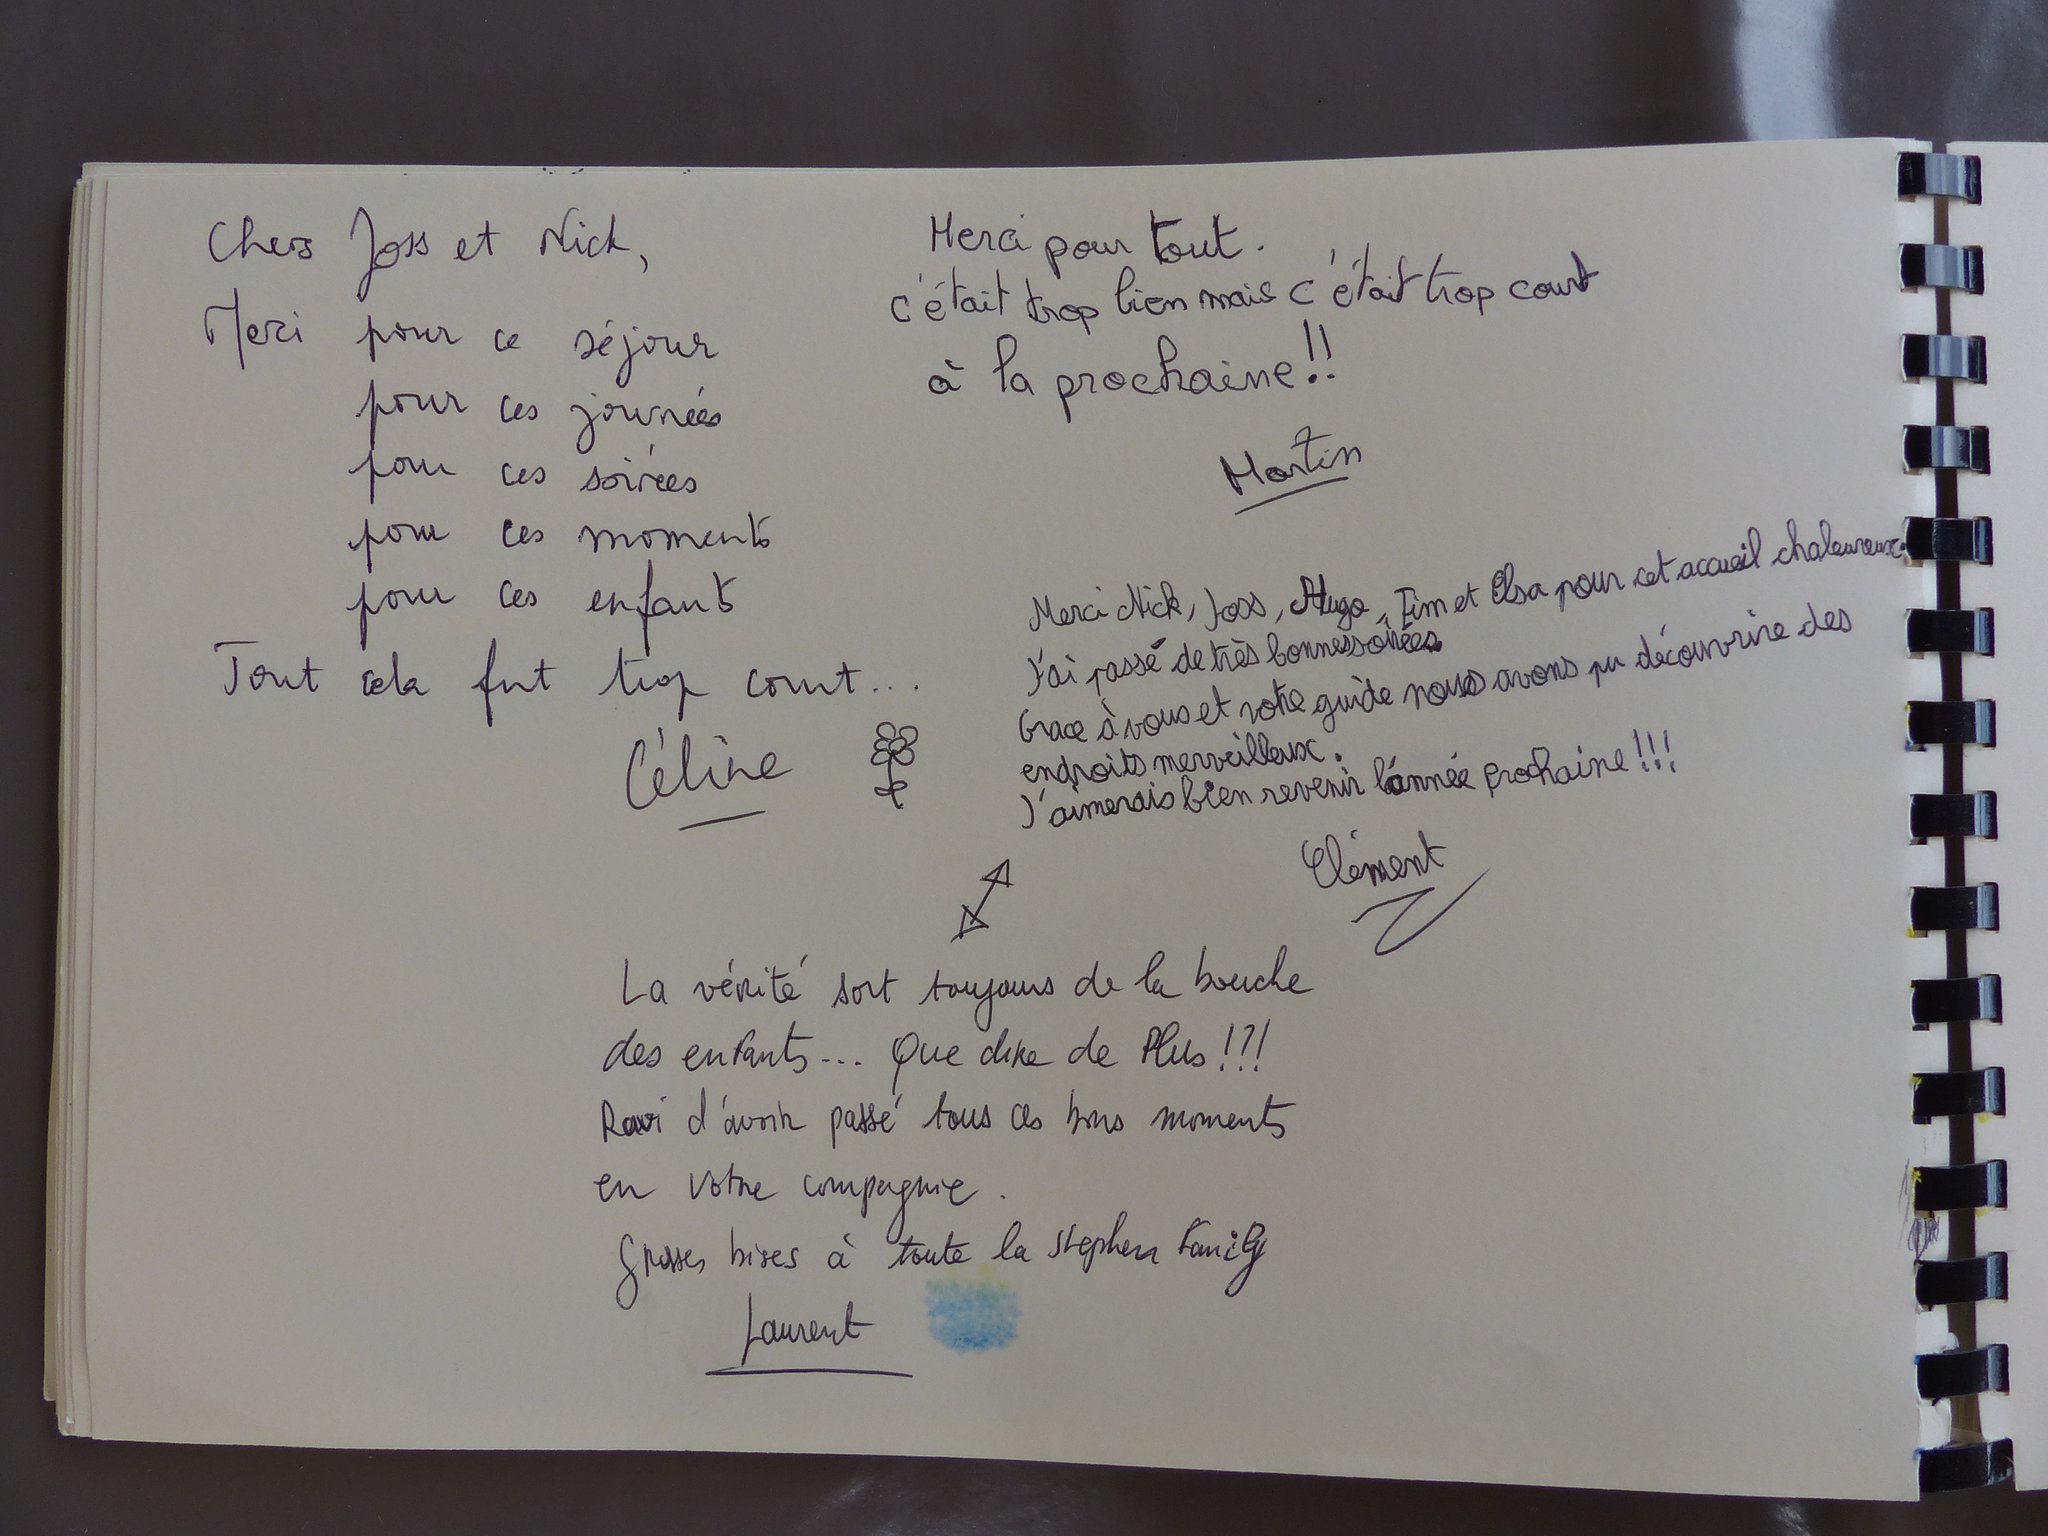 Chers Joss et Nick,
Merci pour ce séjour
pour ces journées
pour ces soirées
pour ces moments
pour ces enfants
Tout cela fut trop court...
Céline
Merci pour tout.
c'était trop bien mais c'était trop court
à la prochaine!!
Martin
Merci Nick, Joss, Hugo, Tim et Elsa pour cet accueil chaleureux.
J'ai passé de très bonnes soirées
Grace à vous et votre guide nous avons pu découvrire des
endroits merveilleux.
J'aimerais bien revenir l'année prochaine!!!
Clément
La vérité sort toujours de la bouche
des enfants... Que dire de Plus!?!
Ravi d'avoir passé tous ces bons moments
en votre compagnie.
Grosses bises à toute la Stephen Family
Laurent